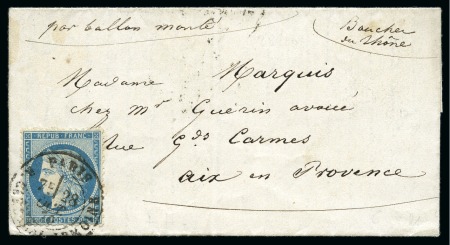 par ballon monté
Boucher
du Rhône
Madame Marquis
chez Mr Guérin avoué
rue Gdes Carmes
Aix en Provence
REPUB FRANC
PARIS
POSTES